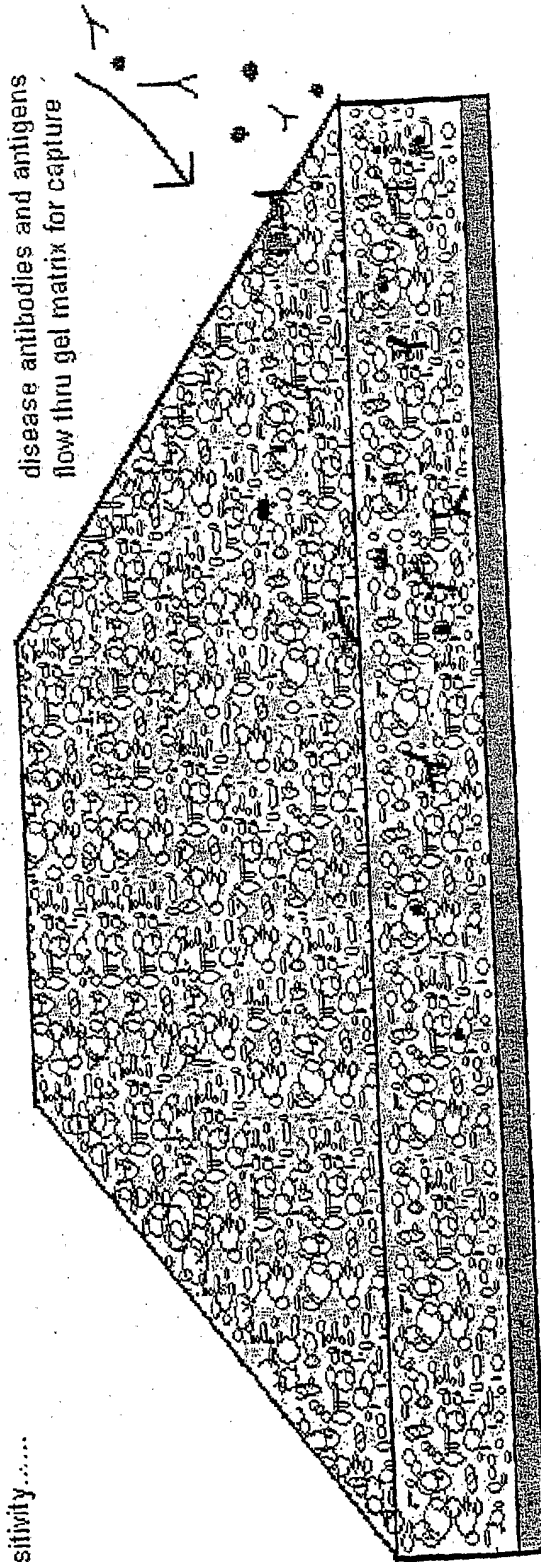 sitivity.....
disease antibodies and antigens
flow thru gel matrix for capture